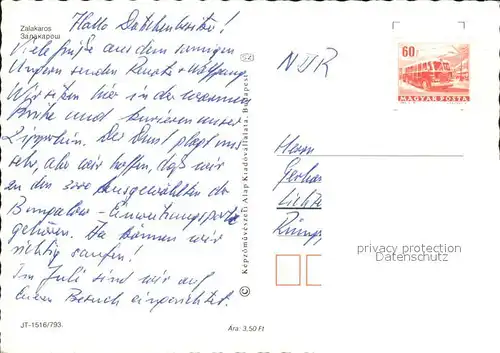 Zalakaros
Залакарош
Hallo Datschenbesitzer!
Viele Grüße aus dem sonnigen
Ungarn senden Renate + Wolfgang.
Wir sitzen hier in der warmen
Brühe und kurieren unser
Zipperlein. Der Durst plagt uns
sehr, aber wir hoffen, daß wir
zu den 3000 ausgewählten der
Bungalow-Einweihungsparty
gehören. Da können wir
richtig saufen!
Im Juli sind wir auf
Euren Besuch eingerichtet.
JT-1516/793.
Ára: 3,50 Ft
© Képzőművészeti Alap Kiadóvállalata, Budapest
NDR
60f
MAGYAR POSTA
Herrn
Gerhar
Lichte
privacy protection
Datenschutz